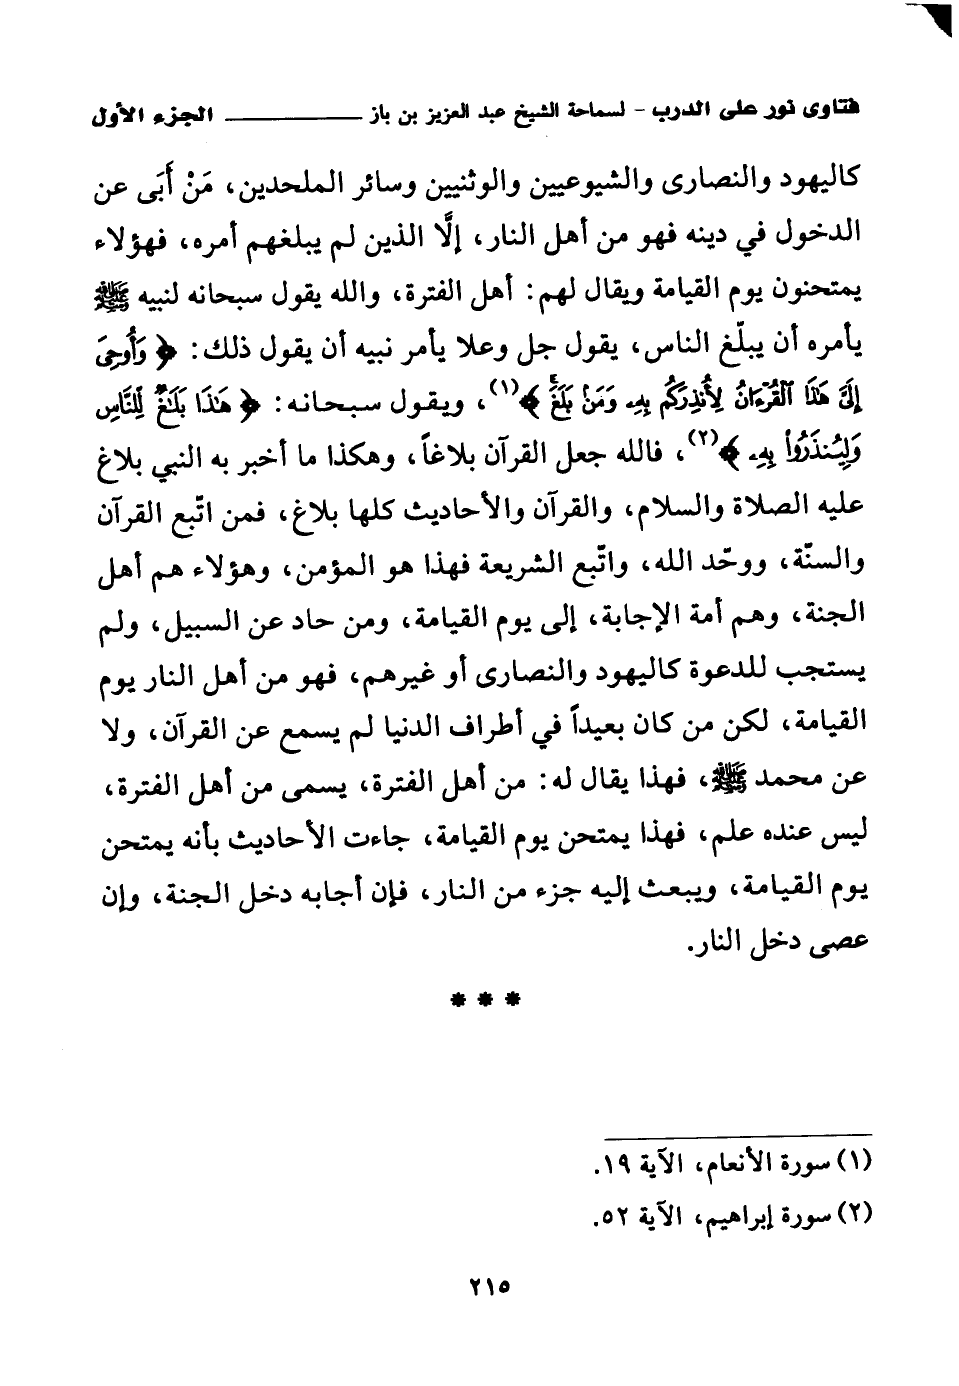 فتاوى نور على الدرب - لسماحة الشيخ عبد العزيز بن باز ــــــــــــــــ الجزء الأول
كاليهود والنصارى والشيوعيين والوثنيين وسائر الملحدين، مَنْ أَبَى عن
الدخول في دينه فهو من أهل النار، إلَّا الذين لم يبلغهم أمره، فهؤلاء
يمتحنون يوم القيامة ويقال لهم: أهل الفترة، والله يقول سبحانه لنبيه ﷺ
يأمره أن يبلّغ الناس، يقول جل وعلا يأمر نبيه أن يقول ذلك: ﴿ وَأُوحِىَ
إِلَىَّ هَٰذَا ٱلْقُرْءَانُ لِأُنذِرَكُم بِهِۦ وَمَنۢ بَلَغَ ۚ ﴾(١)، ويقول سبحانه: ﴿ هَٰذَا بَلَٰغٌ لِّلنَّاسِ
وَلِيُنذَرُوا۟ بِهِۦ ﴾(٢)، فالله جعل القرآن بلاغاً، وهكذا ما أخبر به النبي بلاغ
عليه الصلاة والسلام، والقرآن والأحاديث كلها بلاغ، فمن اتّبع القرآن
والسنّة، ووحّد الله، واتّبع الشريعة فهذا هو المؤمن، وهؤلاء هم أهل
الجنة، وهم أمة الإجابة، إلى يوم القيامة، ومن حاد عن السبيل، ولم
يستجب للدعوة كاليهود والنصارى أو غيرهم، فهو من أهل النار يوم
القيامة، لكن من كان بعيداً في أطراف الدنيا لم يسمع عن القرآن، ولا
عن محمد ﷺ، فهذا يقال له: من أهل الفترة، يسمى من أهل الفترة،
ليس عنده علم، فهذا يمتحن يوم القيامة، جاءت الأحاديث بأنه يمتحن
يوم القيامة، ويبعث إليه جزء من النار، فإن أجابه دخل الجنة، وإن
عصى دخل النار.
* * *
(١) سورة الأنعام، الآية ١٩.
(٢) سورة إبراهيم، الآية ٥٢.
٢١٥